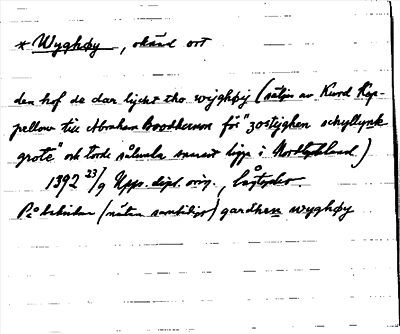 * Wyghøy, okänd ort
den hof de dar lycht tho wÿghøÿ (säljes av Kurd Kap-
pellow till Abraham Broodhuson för "30stighen schyllynk
grote" och torde såluda snarast ligga i Nordtyskland.)
1392 23/9 Upps. dipl. orig., lågtyska.
På baksidan (nästan samtidigt) gardhen wyghøy